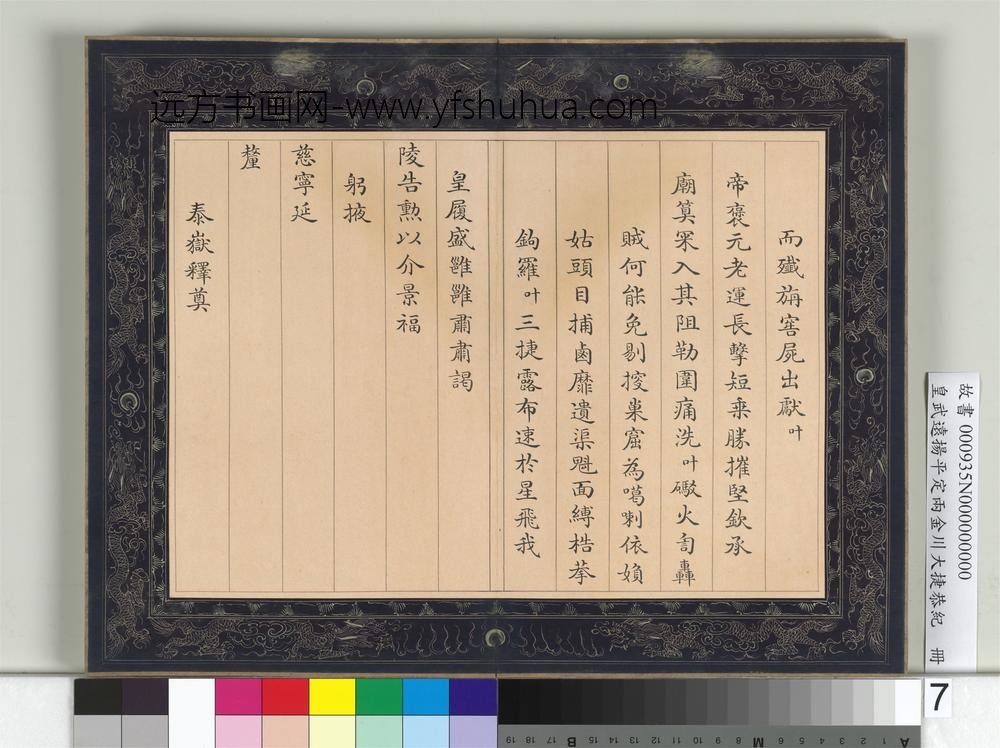 远方书画网-www.yfshuhua.com
而殲旃窖屍出獻叶
帝褒元老運長擊短乗勝摧堅欽承
廟筭罙入其阻勒圍痛洗叶礮火訇轟
賊何能免剔搜巢窟為噶喇依媍
姑頭目捕鹵靡遺渠魁面縛梏拲
鉤羅叶三捷露布速於星飛我
皇履盛雝雝肅肅謁
陵告勲以介景福
躬掖
慈寧延
釐
泰嶽釋奠
故書 000935N000000000
皇武遠揚平定兩金川大捷恭紀 冊
7